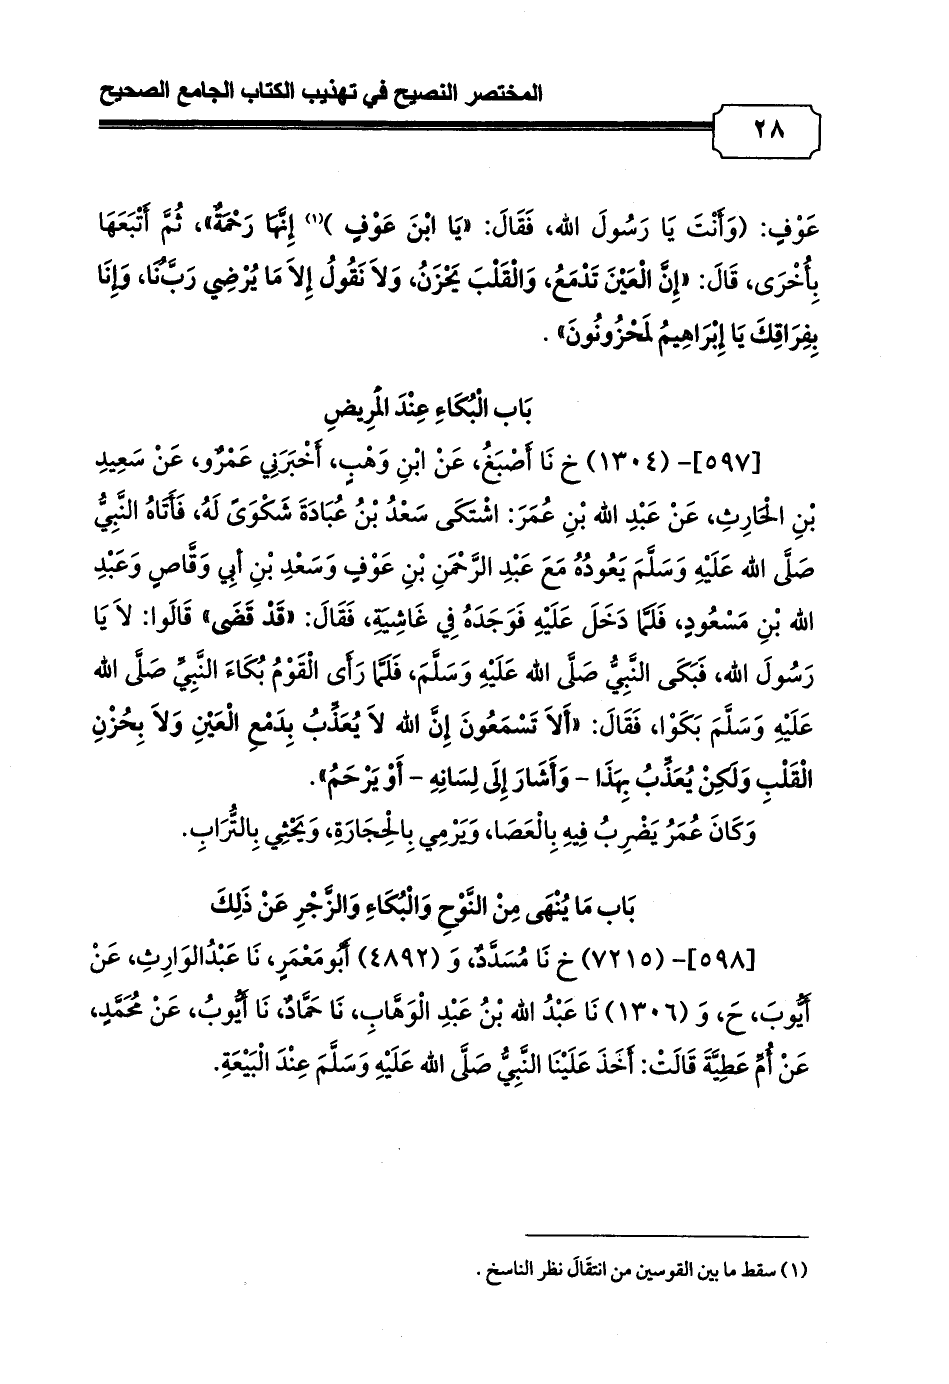 المختصر النصيح في تهذيب الكتاب الجامع الصحيح
٢٨
عَوْفٍ: (وَأَنْتَ يَا رَسُولَ الله، فَقَالَ: «يَا ابْنَ عَوْفٍ )(١) إِنَّهَا رَحْمَةٌ»، ثُمَّ أَتْبَعَهَا
بِأُخْرَى، قَالَ: «إِنَّ الْعَيْنَ تَدْمَعُ، وَالْقَلْبَ يَحْزَنُ، وَلاَ نَقُولُ إِلاَ مَا يُرْضِي رَبَّنَا، وَإِنَا
بِفِرَاقِكَ يَا إِبْرَاهِيمُ لَمحْزُونُونَ» .
بَاب الْبُكَاءِ عِنْدَ المَرِيضِ
[٥٩٧]- (١٣٠٤) خ نَا أَصْبَغُ، عَنْ ابْنِ وَهْبٍ، أَخْبَرَنِي عَمْرٌو، عَنْ سَعِيدِ
بْنِ الْحَارِثِ، عَنْ عَبْدِ الله بْنِ عُمَرَ: اشْتَكَى سَعْدُ بْنُ عُبَادَةَ شَكْوَىً لَهُ، فَأَتَاهُ النَّبِيُّ
صَلَّى الله عَلَيْهِ وَسَلَّمَ يَعُودُهُ مَعَ عَبْدِ الرَّحْمَنِ بْنِ عَوْفٍ وَسَعْدِ بْنِ أَبِي وَقَّاصٍ وَعَبْدِ
الله بْنِ مَسْعُودٍ، فَلَمَّا دَخَلَ عَلَيْهِ فَوَجَدَهُ فِي غَاشِيَةٍ، فَقَالَ: «قَدْ قَضَى» قَالُوا: لاَ يَا
رَسُولَ الله، فَبَكَى النَّبِيُّ صَلَّى الله عَلَيْهِ وَسَلَّمَ، فَلَمَّا رَأَى الْقَوْمُ بُكَاءَ النَّبِيِّ صَلَّى الله
عَلَيْهِ وَسَلَّمَ بَكَوْا، فَقَالَ: «أَلاَ تَسْمَعُونَ إِنَّ الله لاَ يُعَذِّبُ بِدَمْعِ الْعَيْنِ وَلاَ بِحُزْنِ
الْقَلْبِ وَلَكِنْ يُعَذِّبُ بِهَذَا - وَأَشَارَ إِلَى لِسَانِهِ - أَوْ يَرْحَمُ».
وَكَانَ عُمَرُ يَضْرِبُ فِيهِ بِالْعَصَا، وَيَرْمِي بِالْحِجَارَةِ، وَيَحْثِي بِالتُّرَابِ.
بَاب مَا يُنْهَى مِنْ النَّوْحِ وَالْبُكَاءِ وَالزَّجْرِ عَنْ ذَلِكَ
[٥٩٨]- (٧٢١٥) خ نَا مُسَدَّدٌ، وَ (٤٨٩٢) أَبُومَعْمَرٍ، نَا عَبْدُالوَارِثِ، عَنْ
أَيُّوبَ، حَ، وَ (١٣٠٦) نَا عَبْدُ الله بْنُ عَبْدِ الْوَهَّابِ، نَا حَمَّادٌ، نَا أَيُّوبُ، عَنْ مُحَمَّدٍ،
عَنْ أُمِّ عَطِيَّةَ قَالَتْ: أَخَذَ عَلَيْنَا النَّبِيُّ صَلَّى الله عَلَيْهِ وَسَلَّمَ عِنْدَ الْبَيْعَةِ.
(١) سقط ما بين القوسين من انتقَالَ نظر الناسخ .